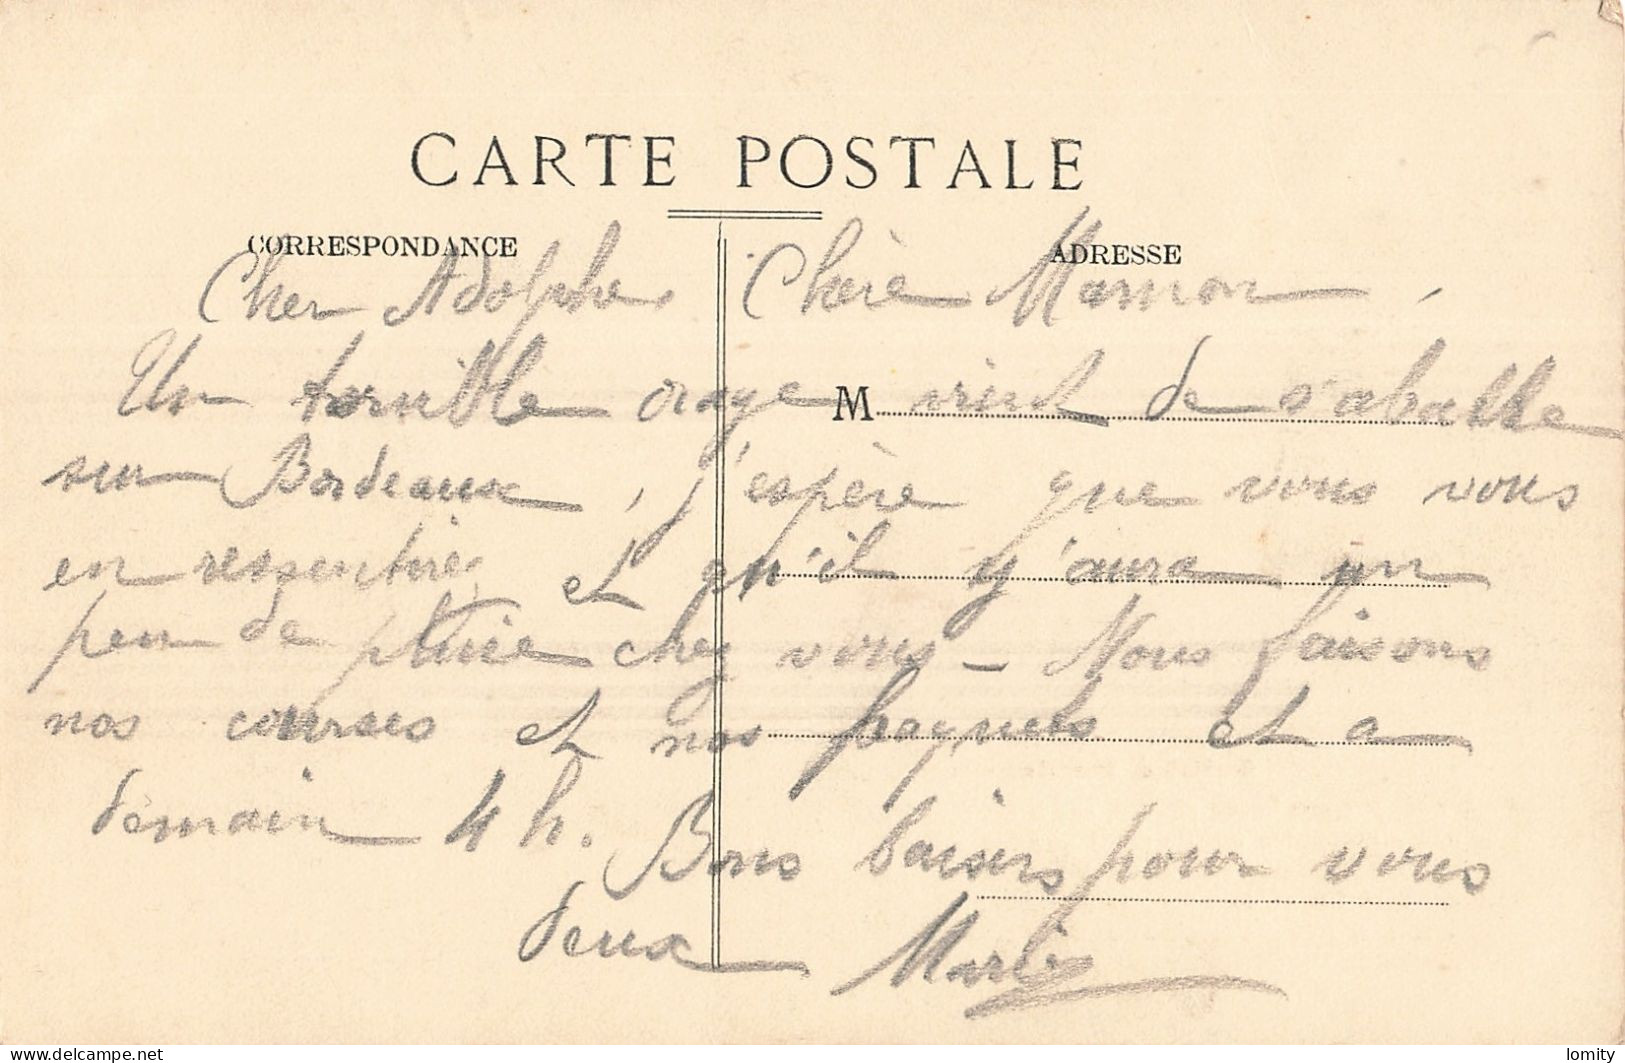 CARTE POSTALE
CORRESPONDANCE ADRESSE
Cher Adolphe, Chère Maman,
Un terrible orage M vient de s'abattre
sur Bordeaux, j'espère que vous vous
en ressentirez et qu'il y'aura un
peu de pluie chez vous - Nous faisons
nos courses et nos paquets et a
demain 4 h. Bons baisers pour vous
deux
delcampe.net
lomity